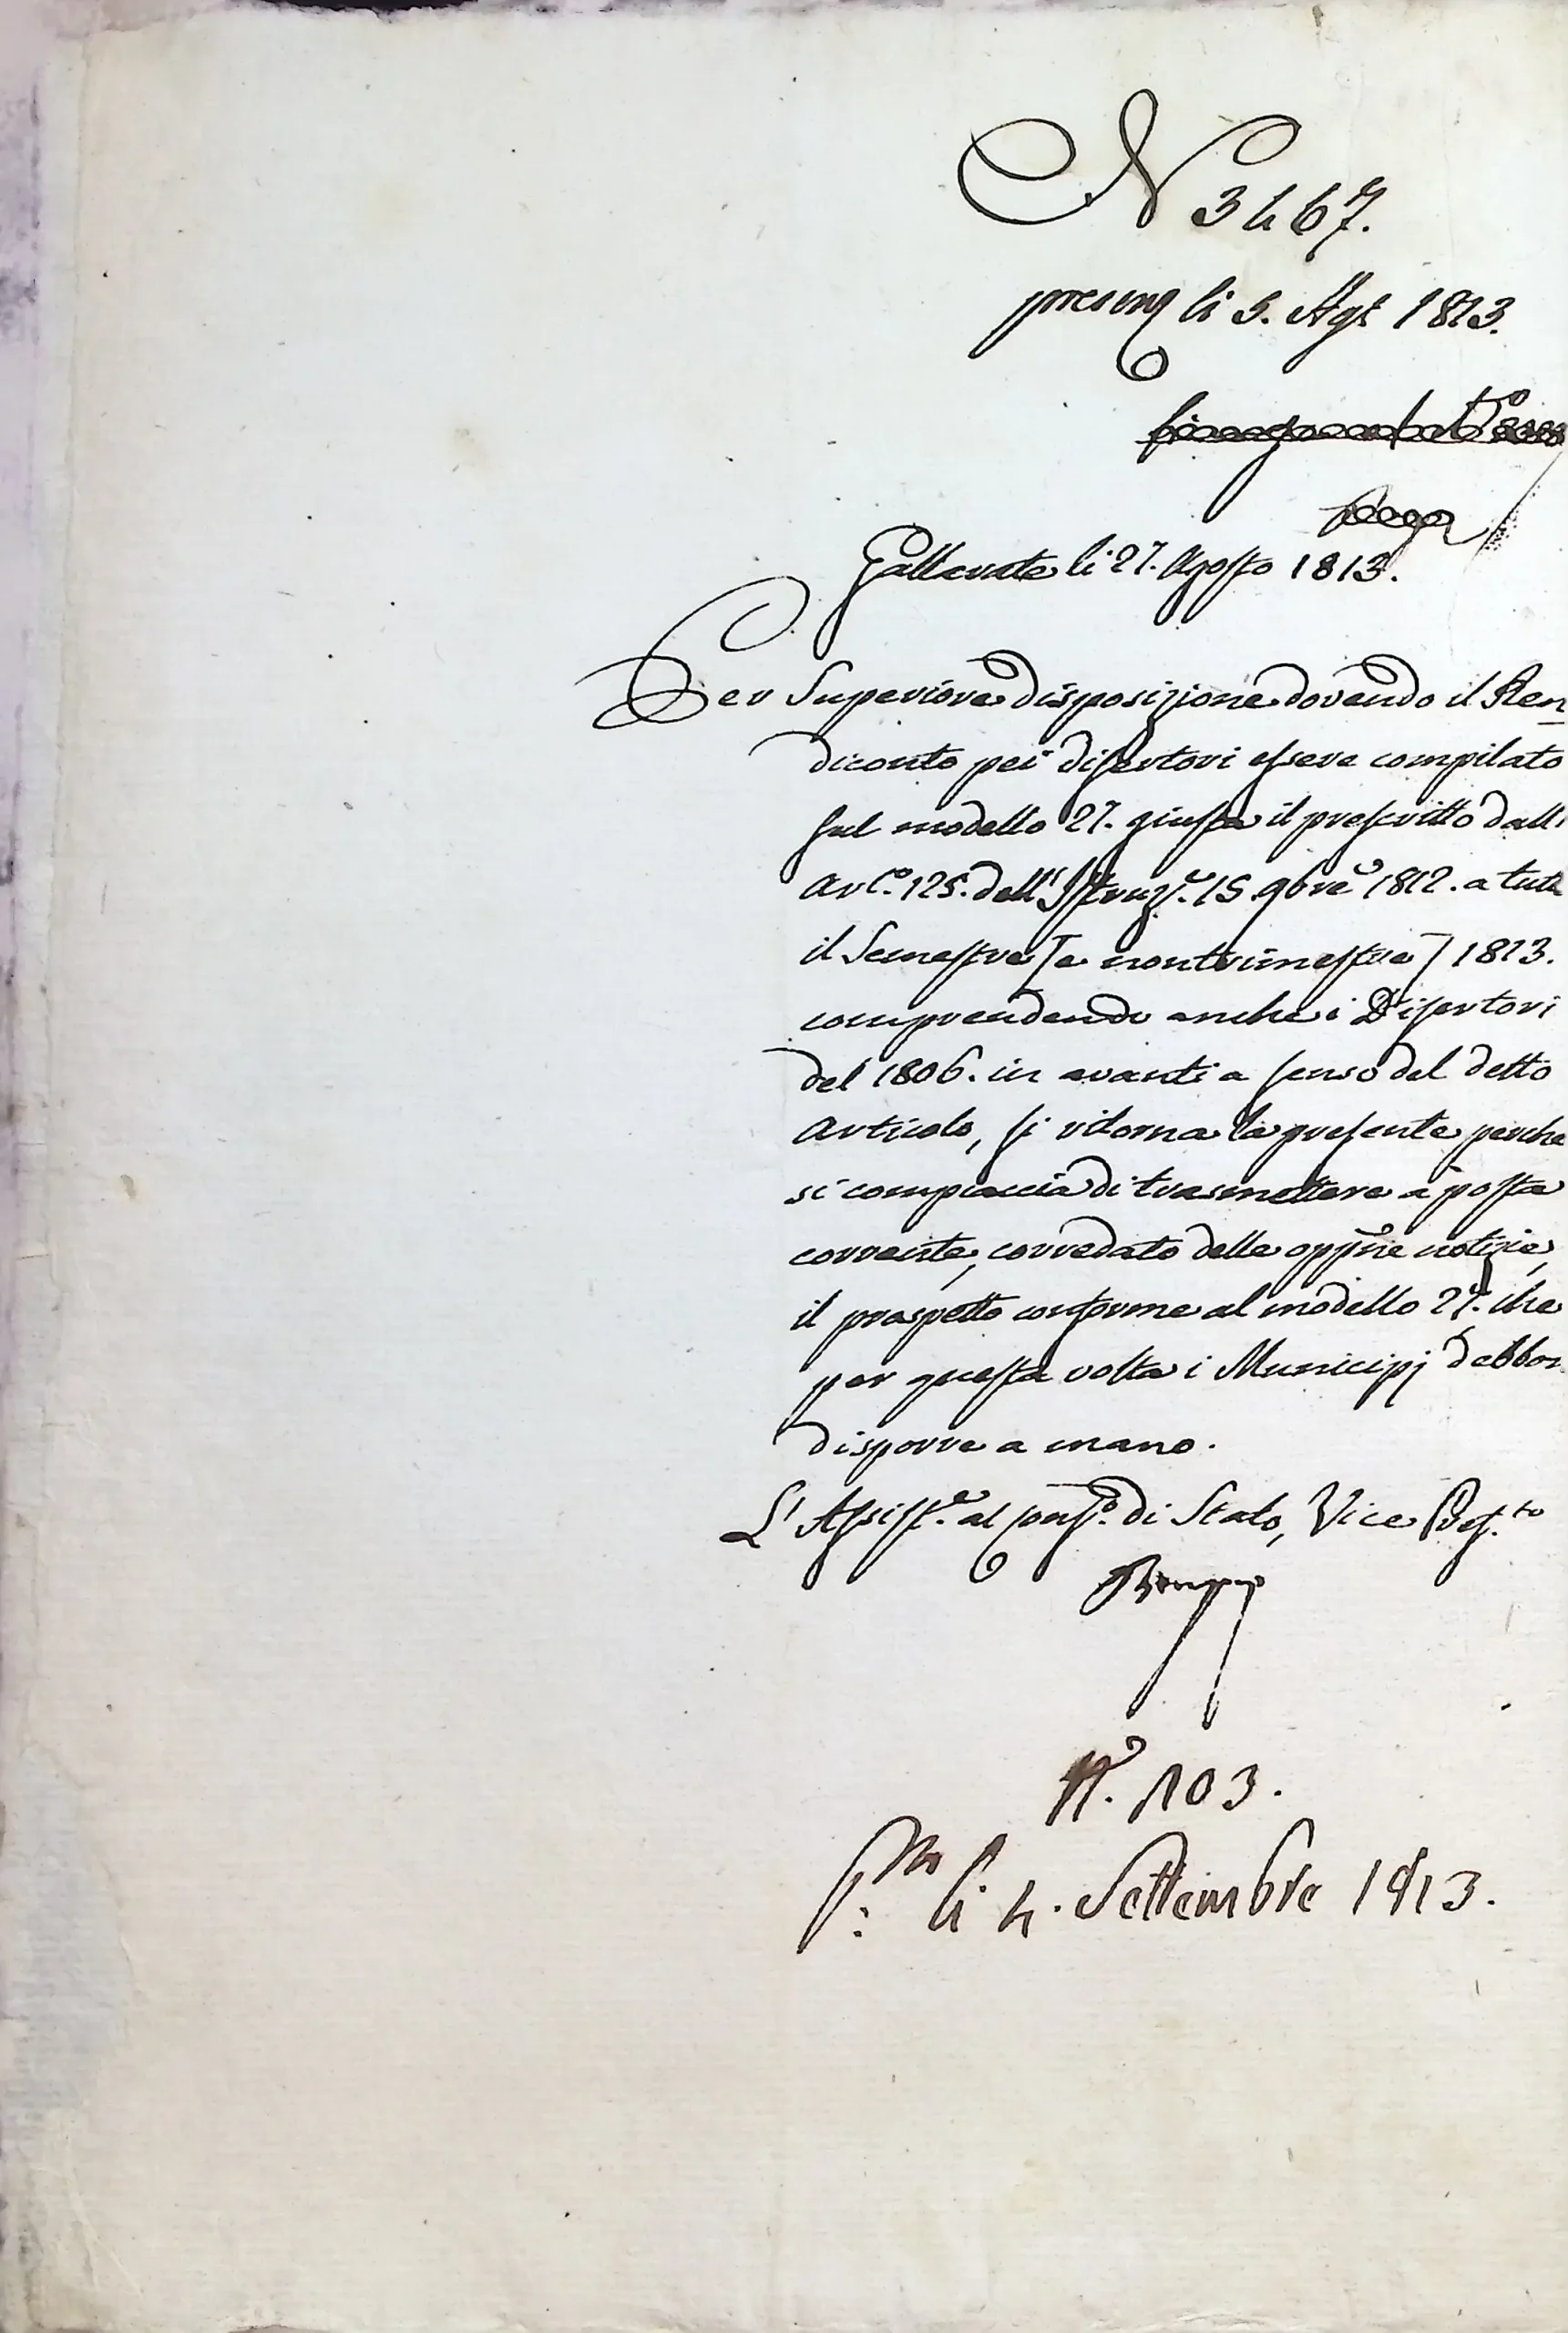 N 3467.
li 5. Agt 1813.
Gallarate li 27. Agosto 1813.
Per Superiore disposizione dovendo il Ren
diconto pei disertori essere compilato
sul modello 27. giusta il prescritto dall'
Art.º 125. dell'Istruz.e 15 9bre 1812. a tutt
il Semestre [e non trimestre] 1813.
comprendendo anche i Disertori
del 1806. in avanti a senso del detto
articolo, si ritorna la presente perche
si compiaccia di trasmettere a posta
corrente, corredato delle oppne notizie,
il prospetto conforme al modello 27. che
per questa volta i Municipj debbon
disporre a mano.
L'Assist.e al Cons.º di Stato, Vice Pref.to
N.º 103.
P.ta li 4. Settembre 1813.